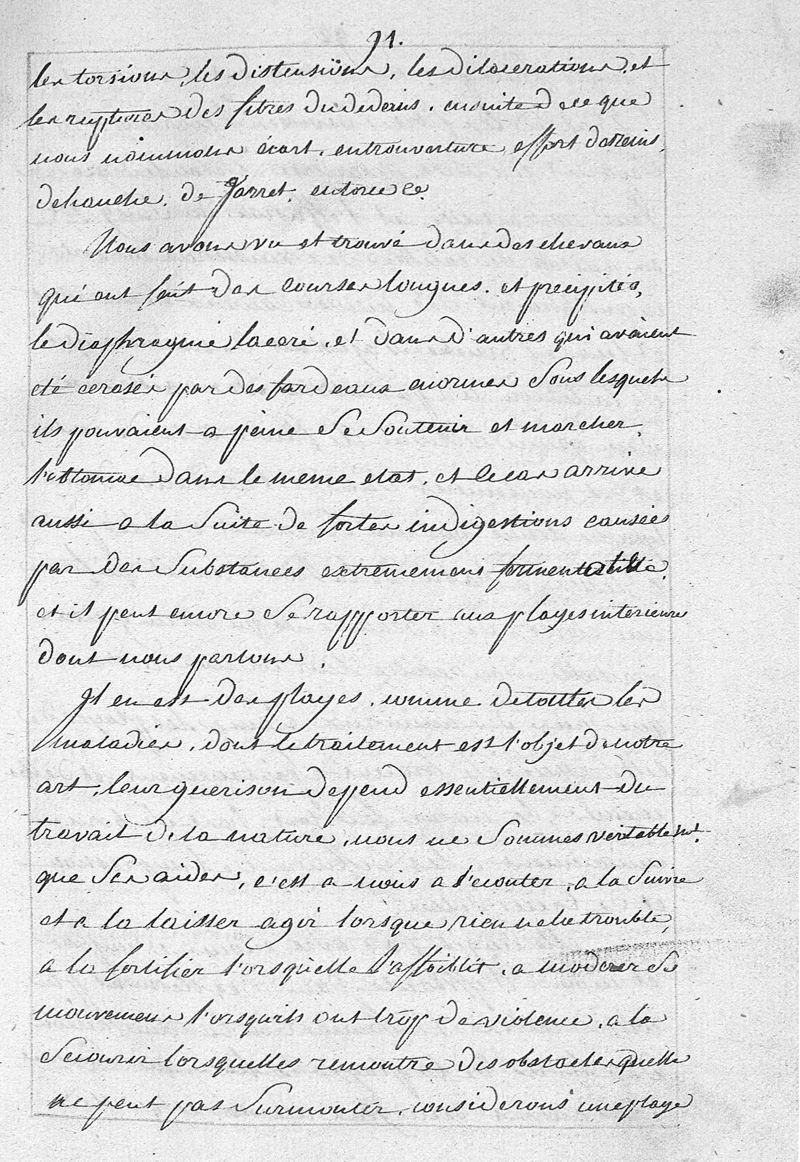 91.
les torsions, les distensions, les dilacerations, et
les ruptures des fibres du dedans, ensuite de ce que
nous nommons écart, entrouverture, effort de reins,
de hanche, de jarret, entorce &c.
Nous avons vu et trouvé dans des chevaux
qui ont fait des courses longues, et precipités,
le diaphragme laceré, et dans d'autres qui avaient
eté ecrasés par des fardeaux enormes sous lesquels
ils pouvaient a peine se soutenir et marcher,
l'estomac dans le meme etat, et le cas arrive
aussi a la suite de fortes indigestions causées
par des substances extremement
et il peut encore se rapporter aux playes interieures
dont nous parlons.
Il en est des playes, comme de toutes les
maladies, dont le traitement est l'objet de notre
art, leur guerison depend essentiellement du
travail de la nature, nous ne sommes veritablemt.
que ses aides, c'est a nous a l'ecouter, a la suivre
et a la laisser agir lorsque rien ne la trouble,
a la fortifier lorsquelle s'affoiblit, a moderer se
mouvemens lorsquils ont trop de violence, a la
secourir lorsquelles rencontre des obstacles quelle
ne peut pas surmonter, considerons une playe